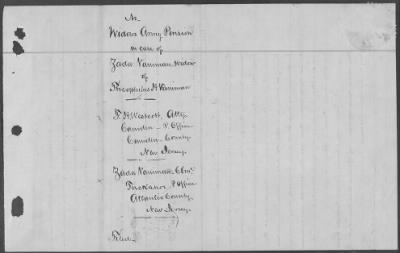 In
Widow's Army Pension
in case of
Zada Vanaman widow
of
Theophilus H Vanaman
Atty
Camden P. Office
Camden County
New Jersey
Zada Vanaman
P Office
Atlantic County
New Jersey
Filed